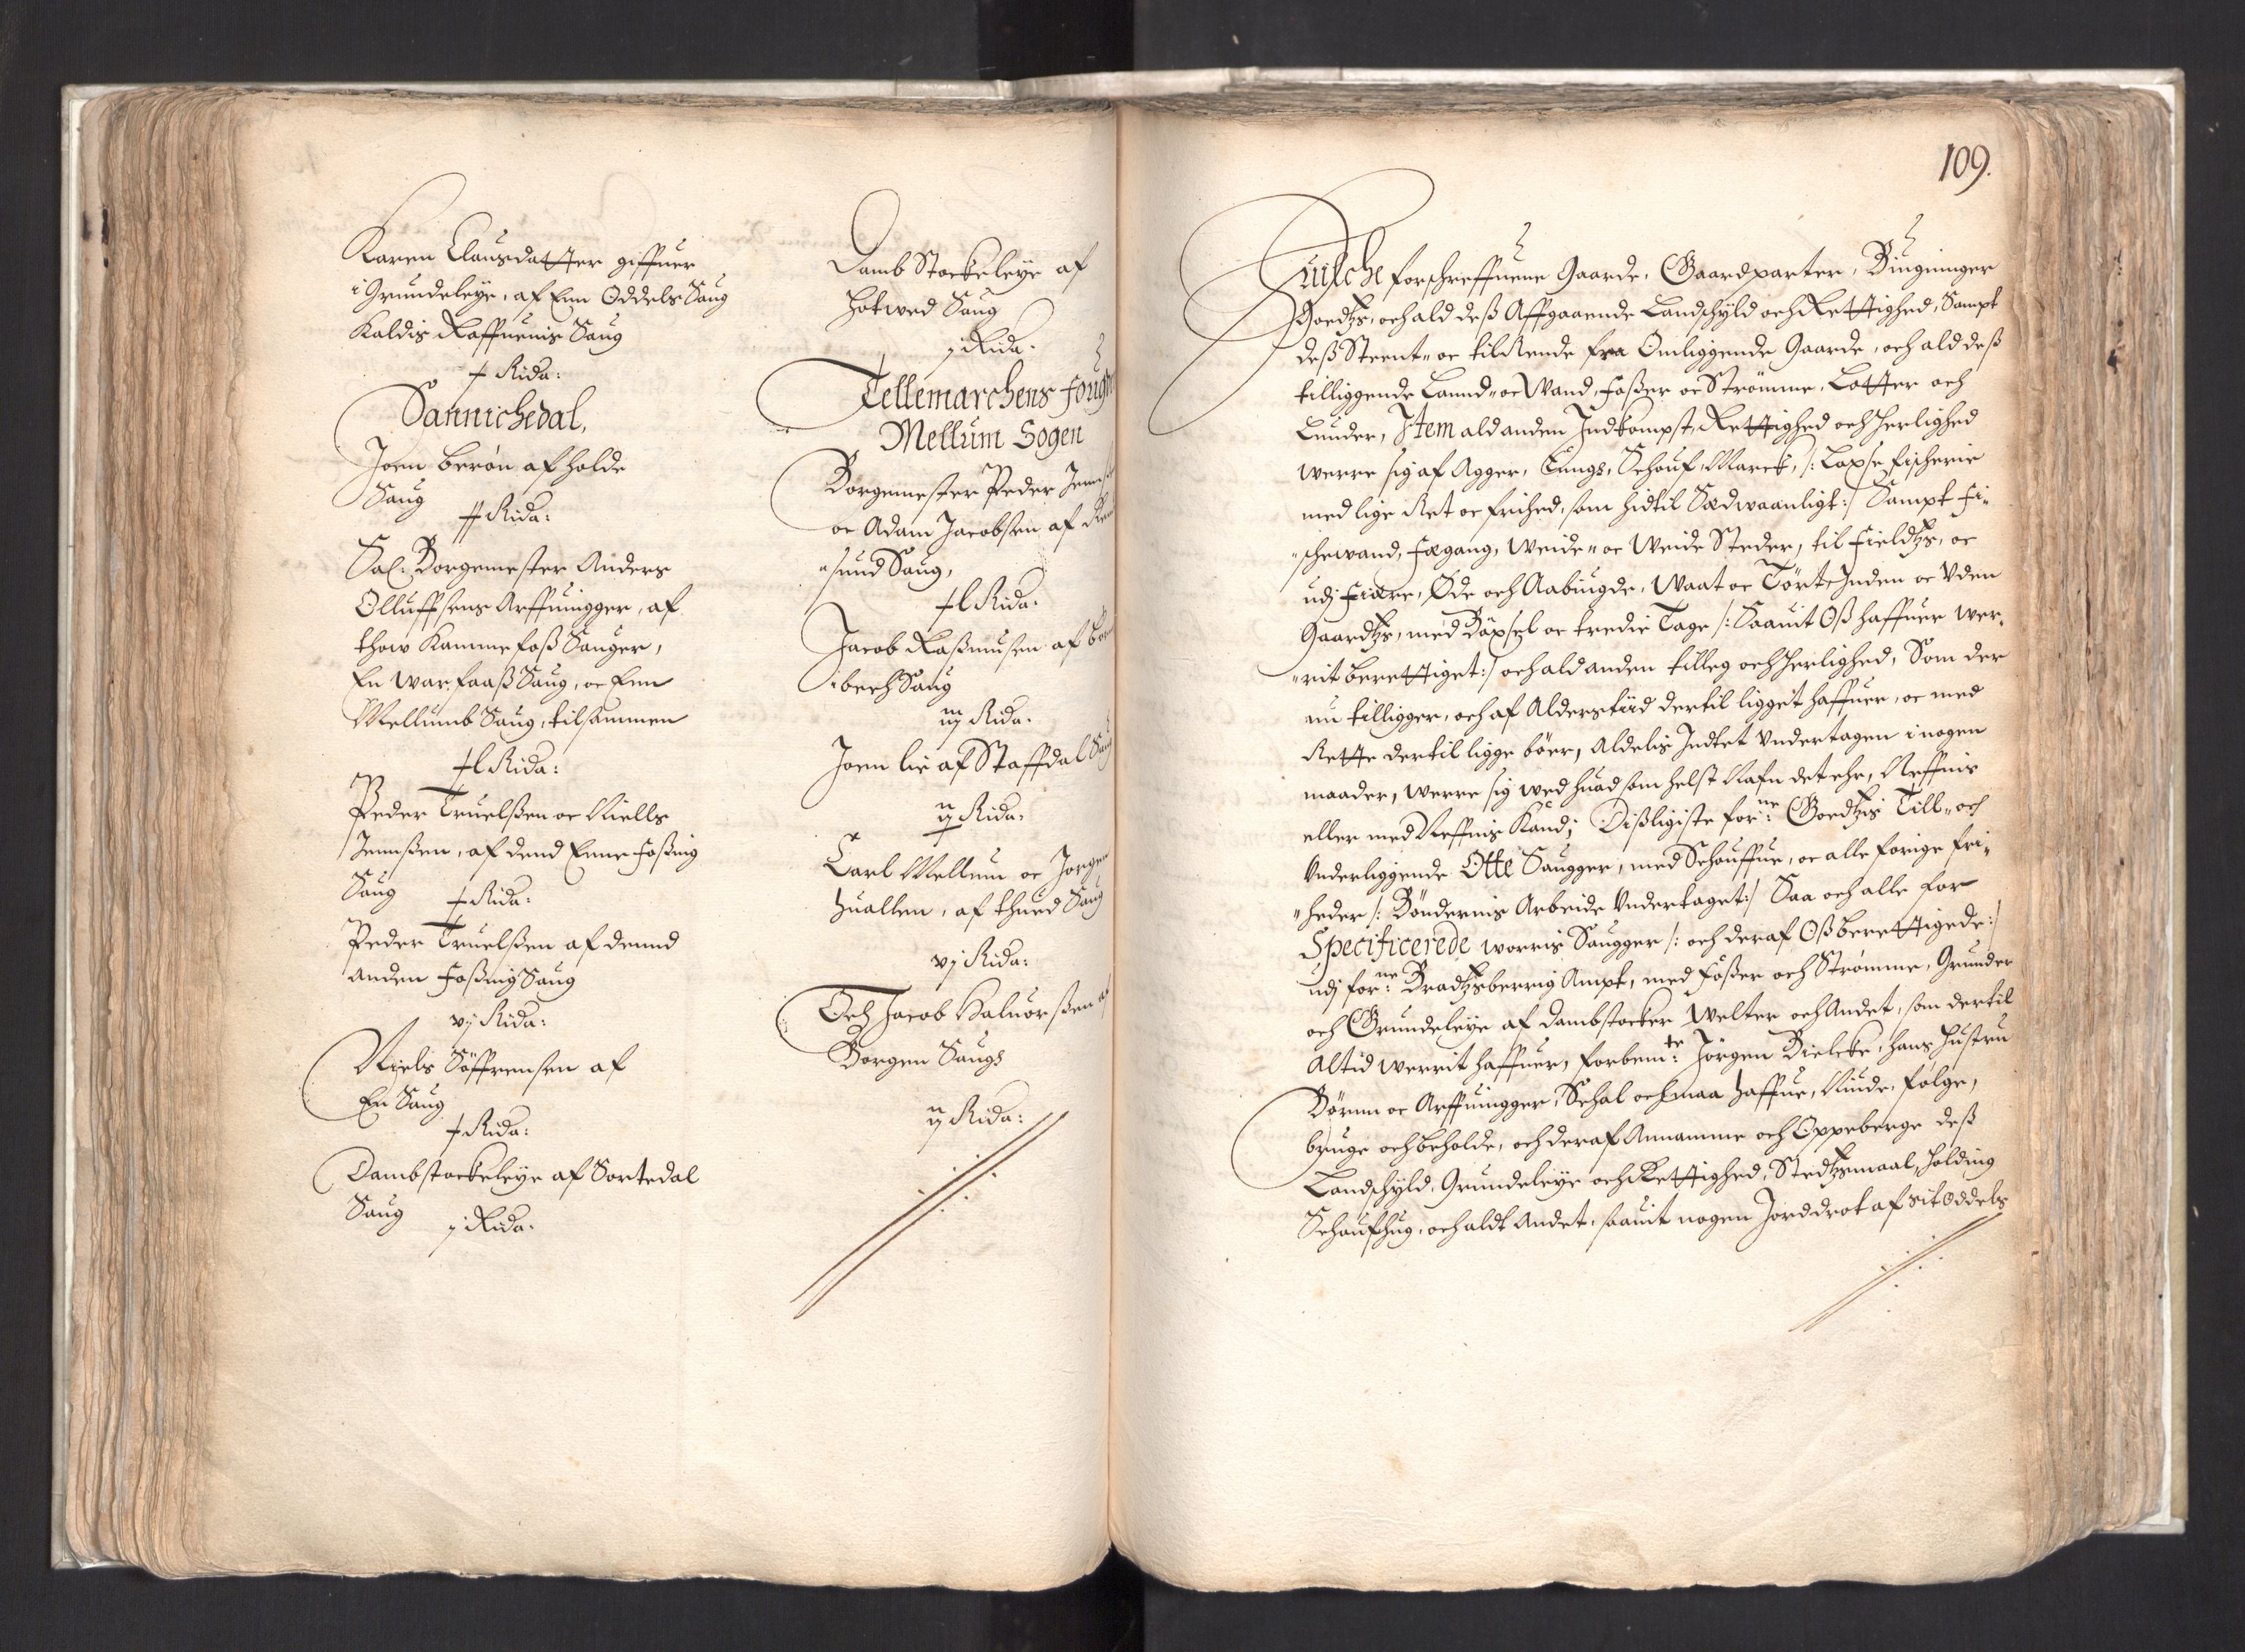 Karen Clausdatter giffuer
i Grundeleye, af Enn Oddels Saug
Kaldis Raffnenis Saug
Rida:
Sannichedal,
Joen Berøn af Holde
Saug
Rida:
Sal: Borgemester Anders
Olluffsens Arffuingger, af
thow Kammefoß Sauger,
En War, faaß Saug, oc Enn
Mellumb Saug, tilsammen
Rida:
Peder Truelßen oc Niells
Jennßen, af dend Enne Foßing
Saug Rida:
Peder Truelßen af dennd
anden Foßing Saug
vj Rida:
Niels Søffrensen af
En Saug
Rida:
Dambstockeleye af Sortedal
Saug j Rida.
Damb Stockeleye af
Hotwed Saug
j Rida.
Tellemarchens Fougd
Mellum Sogen
Borgemester Peder
oc Adam Jacobsen af
sund Saug,
Rida.
Jacob Raßmusen af
bech Saug
iij Rida.
Joen lie af Staffdal Saug
ij Rida.
Carl Mellum oc Jørgen
Huallen, af thued Saug
vj Rida:
Och Jacob Haluorßen af
Borgen Saugs
ij Rida:
109.
Huilche forschreffuenne Gaarde, Gaardparter, Bingninger
Goedtzs, och ald deß Affgaaende Landschyld och Rettighed, Sampt
deß Steent- oc tilRende fra Omliggende Gaarde, och ald deß
tilliggende Lannd- oc Wand, Foßer oc Strømme, Lotter och
Lunder, Item ald anden Indkompst, Rettighed och Herlighed
werre sig af Agger, Eungs, Schouf, Marck, /: Laxse fischerie
med lige Ret oc frihed, som hidtil Sædwaanligt :/ Sampt Fi-
schewand, Fægang, Weide- oc Weide Steder, til Fieldtzs, oc
udj Fiære, Øde och Aabuigde, Waat oc Tørt, Inden oc Uden
Gaardtzs, med Bøxsel oc tredie Tage /: Saauit Oß haffuer wer-
rit berettiget :/ och ald anden tilleg och Herlighed, Som der
nu tilligger, och af Alderstiid dertil ligget haffuer, oc med
Rette dertil ligge bøer, Aldelis Indtet Undertagen i nogen
maader, werre sig wed huad som helst Nafn det ehr, Neffnis
eller med Neffnis Kand; Dißligiste forne: Goedtzis Till- och
Underliggende Otte Saugger, med Schouffue, oc alle forige fri-
heder /: Bøndernis Arbeide Undertaget :/ Saa och alle for
Specificerede worris Saugger /: och deraf Oß berettigede :/
udj forne: Bradtzberrig Ampt, med Foßer och Strømme, Grunder
och Grundeleye af Dambstocker Welter och Andet, som dertil
Altid werrit haffuer, forbemte: Jørgen Bielcke, Hans Hustru
Børnn oc Arffuingger, Schal och maa Haffue, Niude, følge,
bruge och beholde, och deraf Annamme och Oppeberge deß
Landschyld, Grundeleye och Rettighed, Stedtzmaal, Holding
Schoufhug, och aldt Andet, saauit nogen Jorddrot af sit Oddels